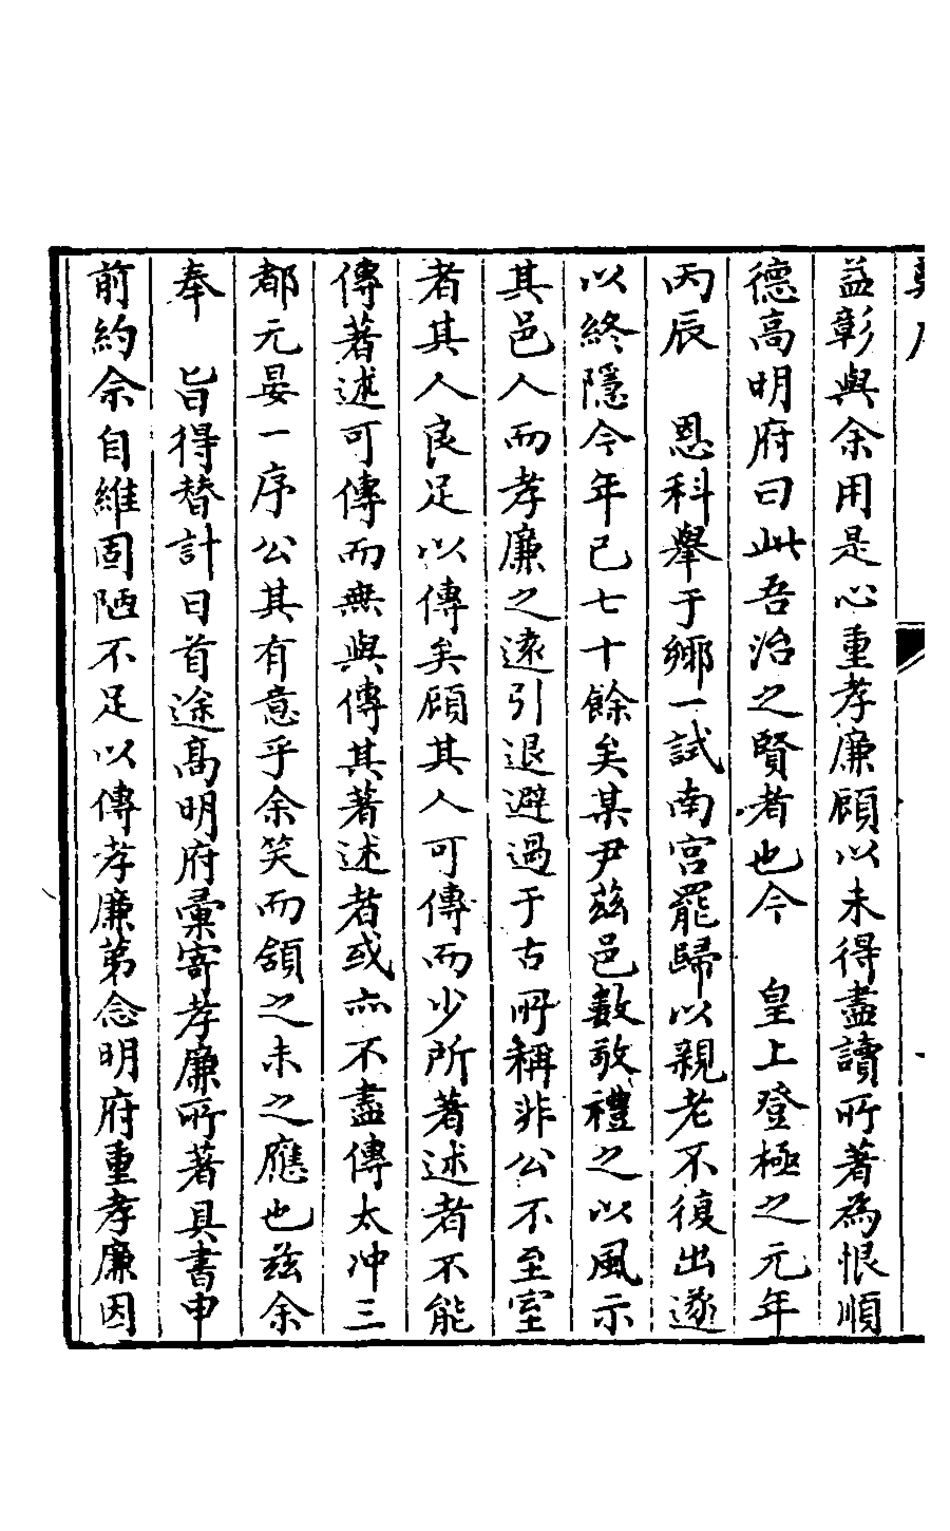 益彰與余用是心重孝廉顧以未得盡讀所著為恨順
德高明府曰此吾治之賢者也今　皇上登極之元年
丙辰　恩科舉于鄉一試南宮罷歸以親老不復出遂
以終隱今年已七十餘矣某尹茲邑數敬禮之以風示
其邑人而孝廉之遠引退避過于古所稱非公不至室
者其人良足以傳矣顧其人可傳而少所著述者不能
傳著述可傳而無與傳其著述者或亦不盡傳太沖三
都元晏一序公其有意乎余笑而頷之未之應也茲余
奉　旨得替計日首途高明府彙寄孝廉所著具書申
前約余自維固陋不足以傳孝廉第念明府重孝廉因